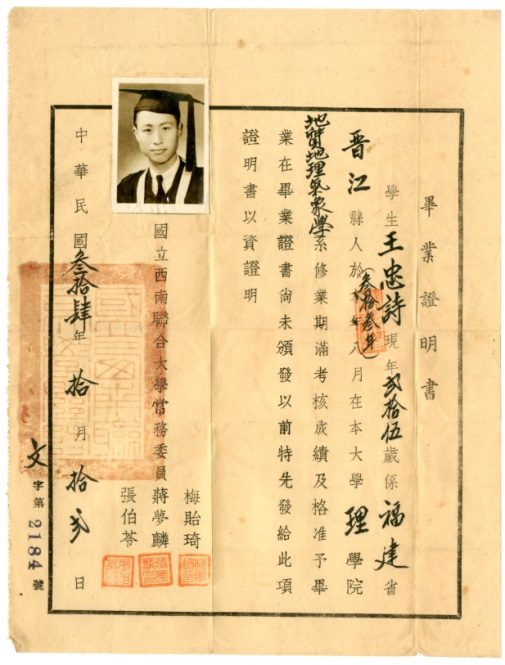 畢業證明書
學生王忠詩現年貳拾伍歲係福建省
晋江縣人於 年八月在本大學理學院
(叁拾叁年)
地質地理氣象學系修業期滿考核成績及格准予畢
業在畢業證書尚未頒發以前特先發給此項
證明書以資證明
國立西南聯合大學常務委員
梅貽琦
蔣夢麟
張伯苓
中華民國叁拾肆年拾月拾貳日
文字第2184號